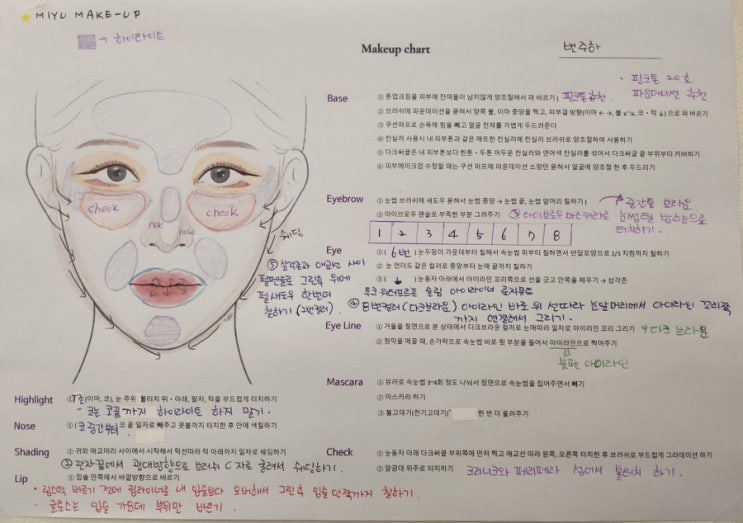 ★ MIYU MAKE-UP
→ 하이라이트
Makeup chart
변주하
· 핑크톤 20호
파운데이션 추천
Base
① 톤업크림을 피부에 잔여물이 남지않게 양조절해서 펴 바르기 ( 핑크톤 추천.
② 브러쉬에 파운데이션을 묻혀서 양쪽 볼, 이마 중앙을 찍고, 피부결 방향(이마 ← →, 볼 ↙↘, 코 · 턱 ↓)으로 펴 바르기
③ 쿠션퍼프로 손목에 힘을 빼고 얼굴 전체를 가볍게 두드려준다
④ 컨실러 사용시 내 피부톤과 같은 매트한 컨실러에 컨실러 브러쉬로 양조절하여 사용하기
⑤ 다크써클은 내 피부톤보다 한톤 · 두톤 어두운 컨실러와 연어색 컨실러를 섞어서 다크써클 끝 부위부터 커버하기
⑥ 피부메이크업 수정할 때는 쿠션 퍼프에 파운데이션 소량만 묻혀서 얼굴에 양조절 한 후 두드리기
check
check
nose
nose
쉐딩
Eyebrow
① 눈썹 브러쉬에 섀도우 묻혀서 눈썹 중앙 → 눈썹 끝, 눈썹 앞머리 칠하기 ( 중간톤 브라운
② 아이브로우 펜슬로 부족한 부분 그려주기
③ 아이브로우 마스카라로 눈썹털 반대방향으로
터치하기.
1 2 3 4 5 6 7 8
Eye
① ( 6번 ) 눈두덩이 가운데부터 칠해서 속눈썹 위부터 칠하면서 반달모양으로 2/3 지점까지 칠하기
② 눈 언더도 같은 컬러로 중앙부터 눈매 끝까지 칠하기
③ ( ) 눈동자 아래에서 아이라인 꼬리쪽으로 선을 긋고 안쪽을 채우기 → 삼각존
투크 워터프루프 슬림 아이라이너
④ 8번컬러 (다크브라운) 아이라인 바로 위 선따라 눈앞머리에서 아이라인 꼬리끝
까지 연결해서 그리기.
⑤ 삼각존과 애교선 사이
펄펜슬로 그린후 위에
펄섀도우 한번더
칠하기 (2번컬러)
Eye Line
① 거울을 정면으로 본 상태에서 다크브라운 컬러로 눈매따라 일자로 아이라인 꼬리 그리기 * 다크 브라운
② 점막을 메꿀 때, 손가락으로 속눈썹 바로 윗 부분을 들어서 아이라인으로 찍어주기
붓펜 아이라인
Mascara
① 뷰러로 속눈썹 3~4회 정도 나눠서 정면으로 속눈썹을 집어주면서 빼기
② 마스카라 하기
③ 불고데기(전기고데기) 한 번 더 올려주기
Highlight
① T존(이마, 코), 눈 주위 볼터치 위 · 아래, 팔자, 턱을 부드럽게 터치하기
· 코는 코끝까지 하이라이트 하지 말기.
Nose
① (코 중간부터 코 끝 일자로 빼주고 콧볼까지 터치한 후 안에 색칠하기
Shading
① 귀와 애교머리 사이에서 시작해서 턱선따라 턱 아래까지 일자로 쉐딩하기
② 관자끝에서 광대방향으로 브러쉬 C자로 굴려서 쉐딩하기.
Lip
① 입술 안쪽에서 바깥방향으로 바르기
· 립스틱 바르기 전에 립라이너로 내 입술보다 오버해서 그린후 입술 안쪽까지 칠하기.
· 글로스는 입술 가운데 부위만 바르기.
Check
① 눈동자 아래 다크써클 부위쪽에 먼저 찍고 애교선 따라 왼쪽, 오른쪽 터치한 후 브러쉬로 부드럽게 그라데이션 하기
② 앞광대 위주로 터치하기 크리니크와 페리페라 섞어서 볼터치 하기.